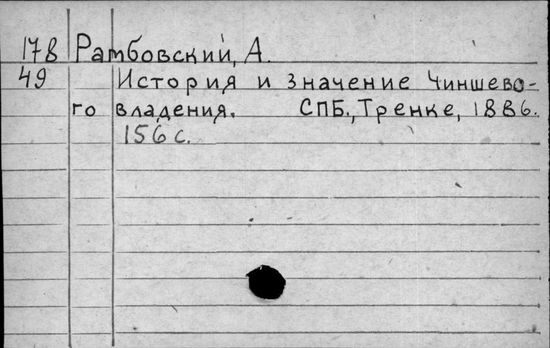 178 Рамбовский, А.
49 История и значение Чиншево-
го владения. СПБ., Тренке, 1886.
156 с.